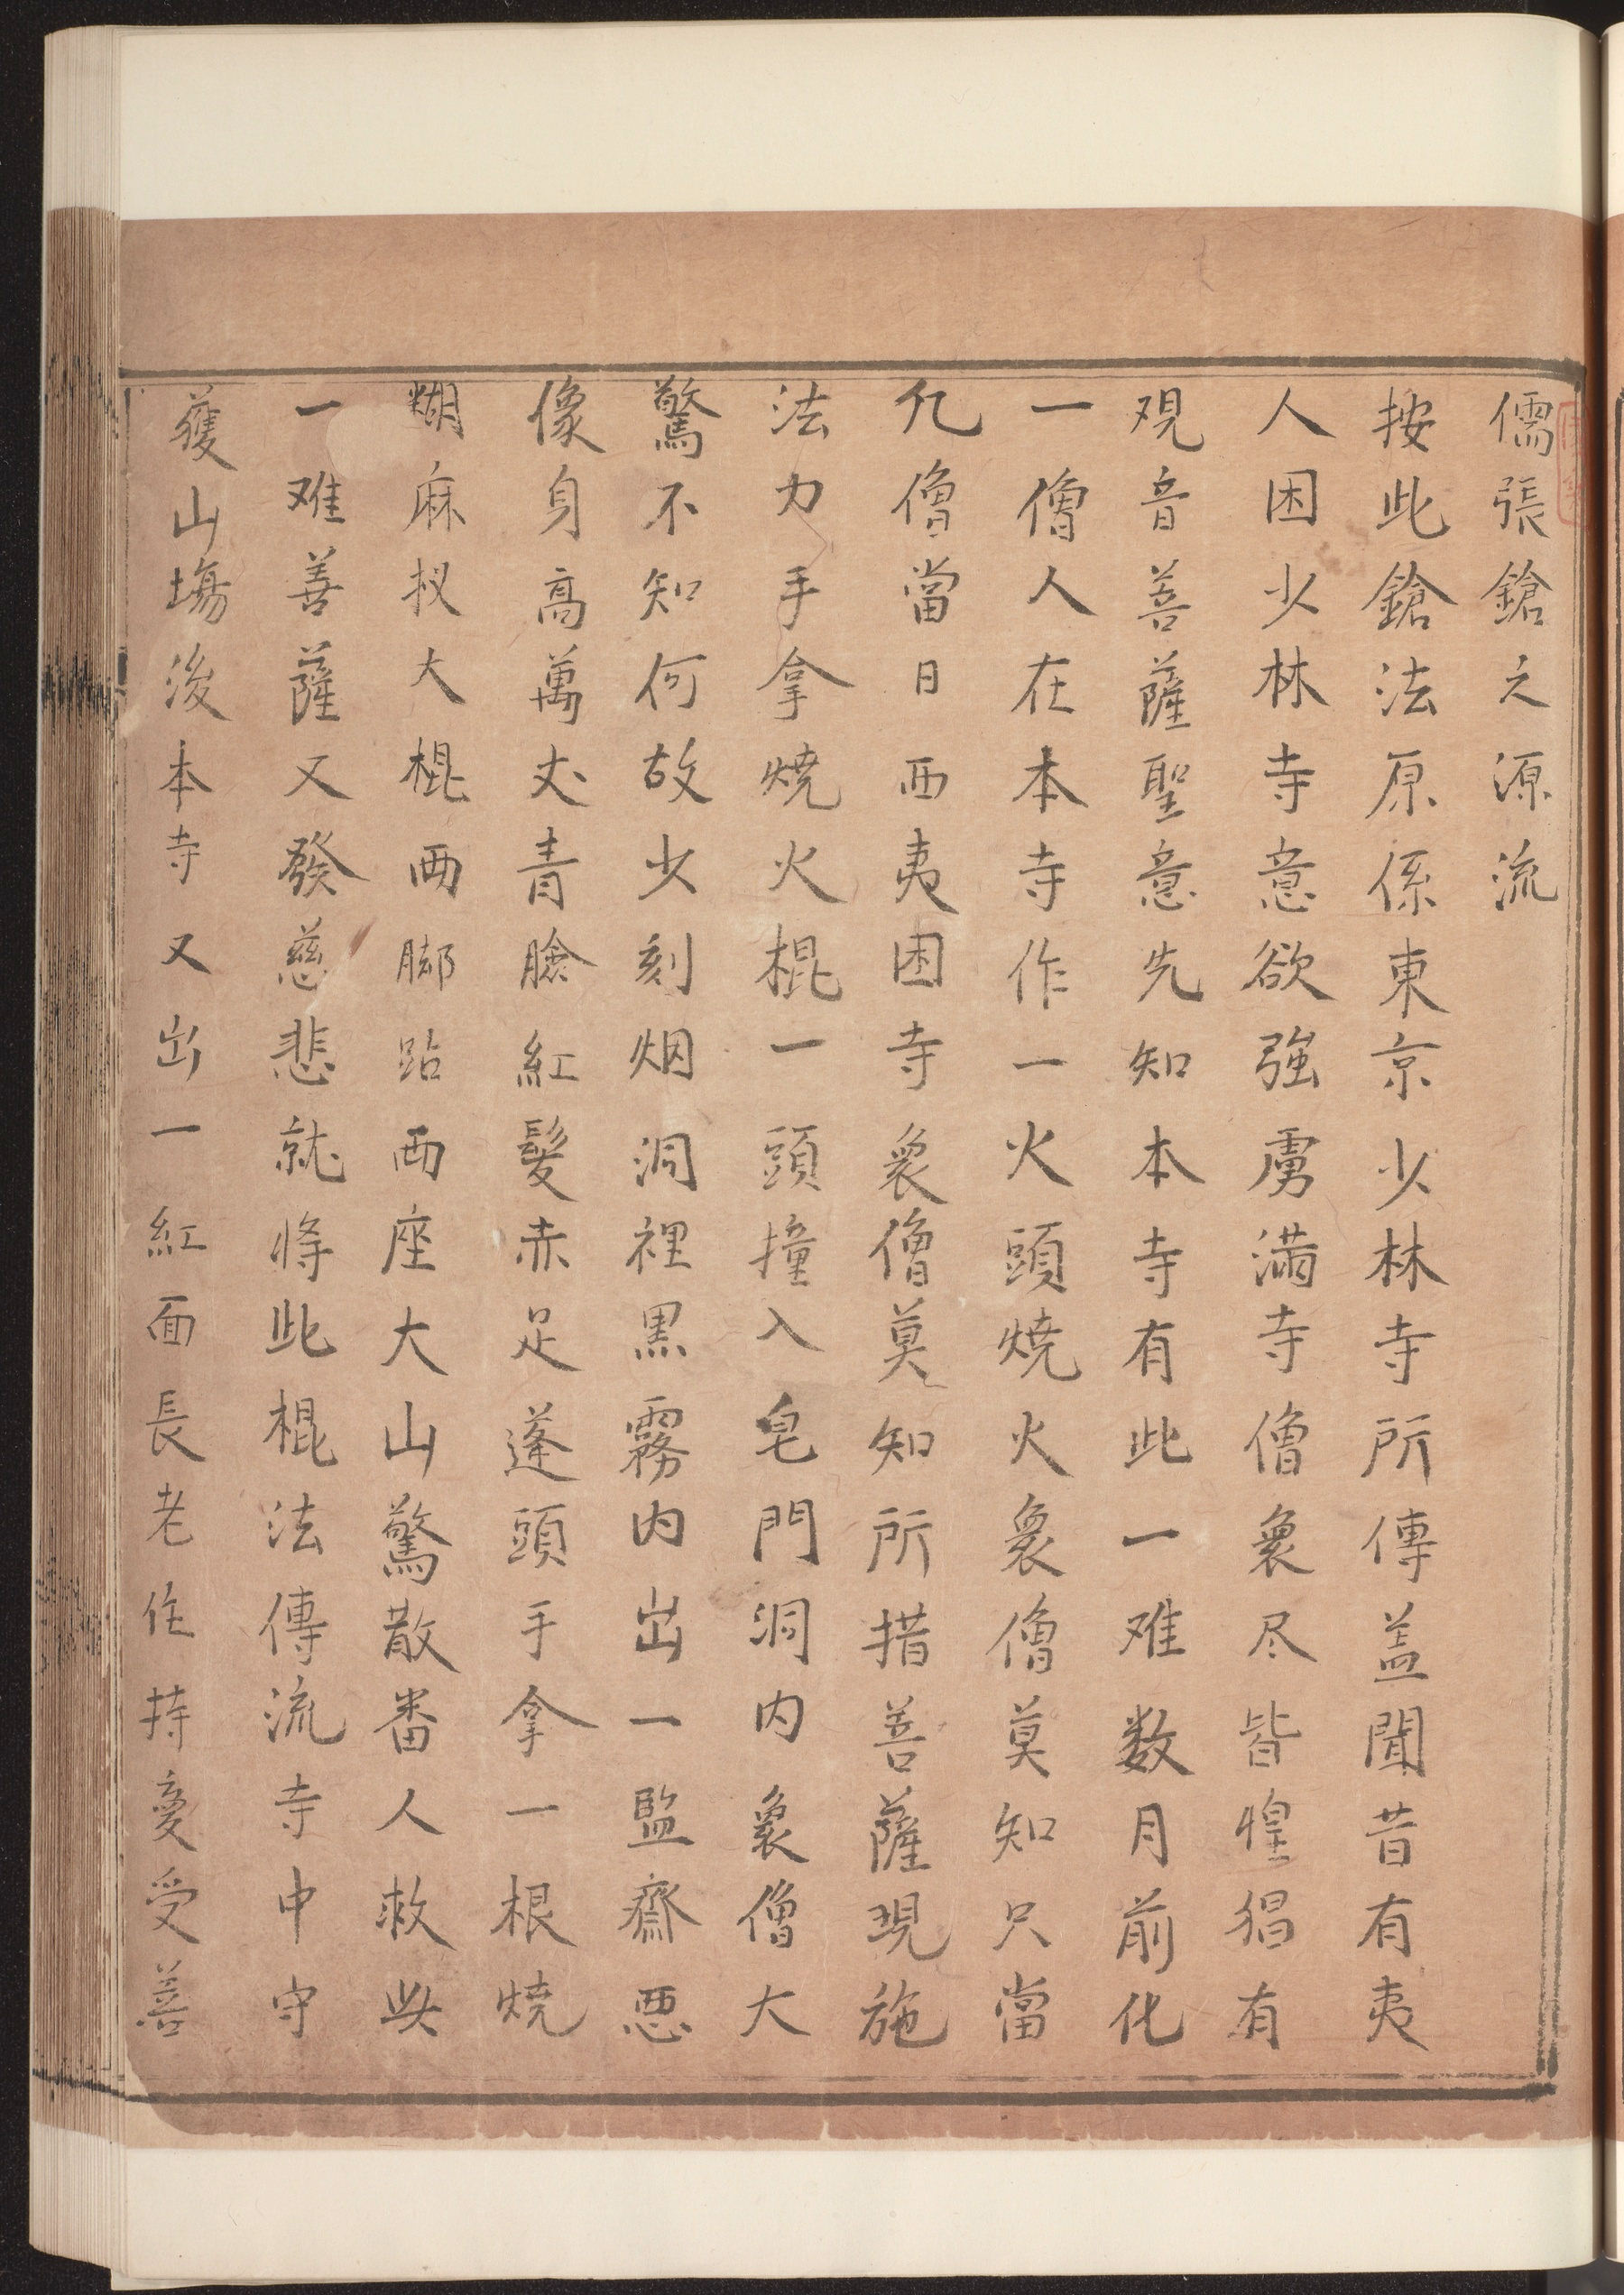 儒張鎗之源流
按此鎗法原係東京少林寺所傳盖聞昔有夷
人困少林寺意欲強虜滿寺僧眾尽皆惶猖有
观音菩薩聖意先知本寺有此一难数月前化
一僧人在本寺作一火頭燒火眾僧莫知只當
凢僧當日西夷困寺眾僧莫知所措菩薩現施
法力手拿燒火棍一頭撞入皂門洞内眾僧大
驚不知何故少刻烟洞裡黒霧内出一監齋悪
像身高萬丈青臉紅髮赤足蓬頭手拿一根燒
糊麻扠大棍両脚跕両座大山驚散番人救此
一难善薩又發慈悲就将此棍法傳流寺中守
䕶山塲後本寺又出一紅面長老住持愛受菩